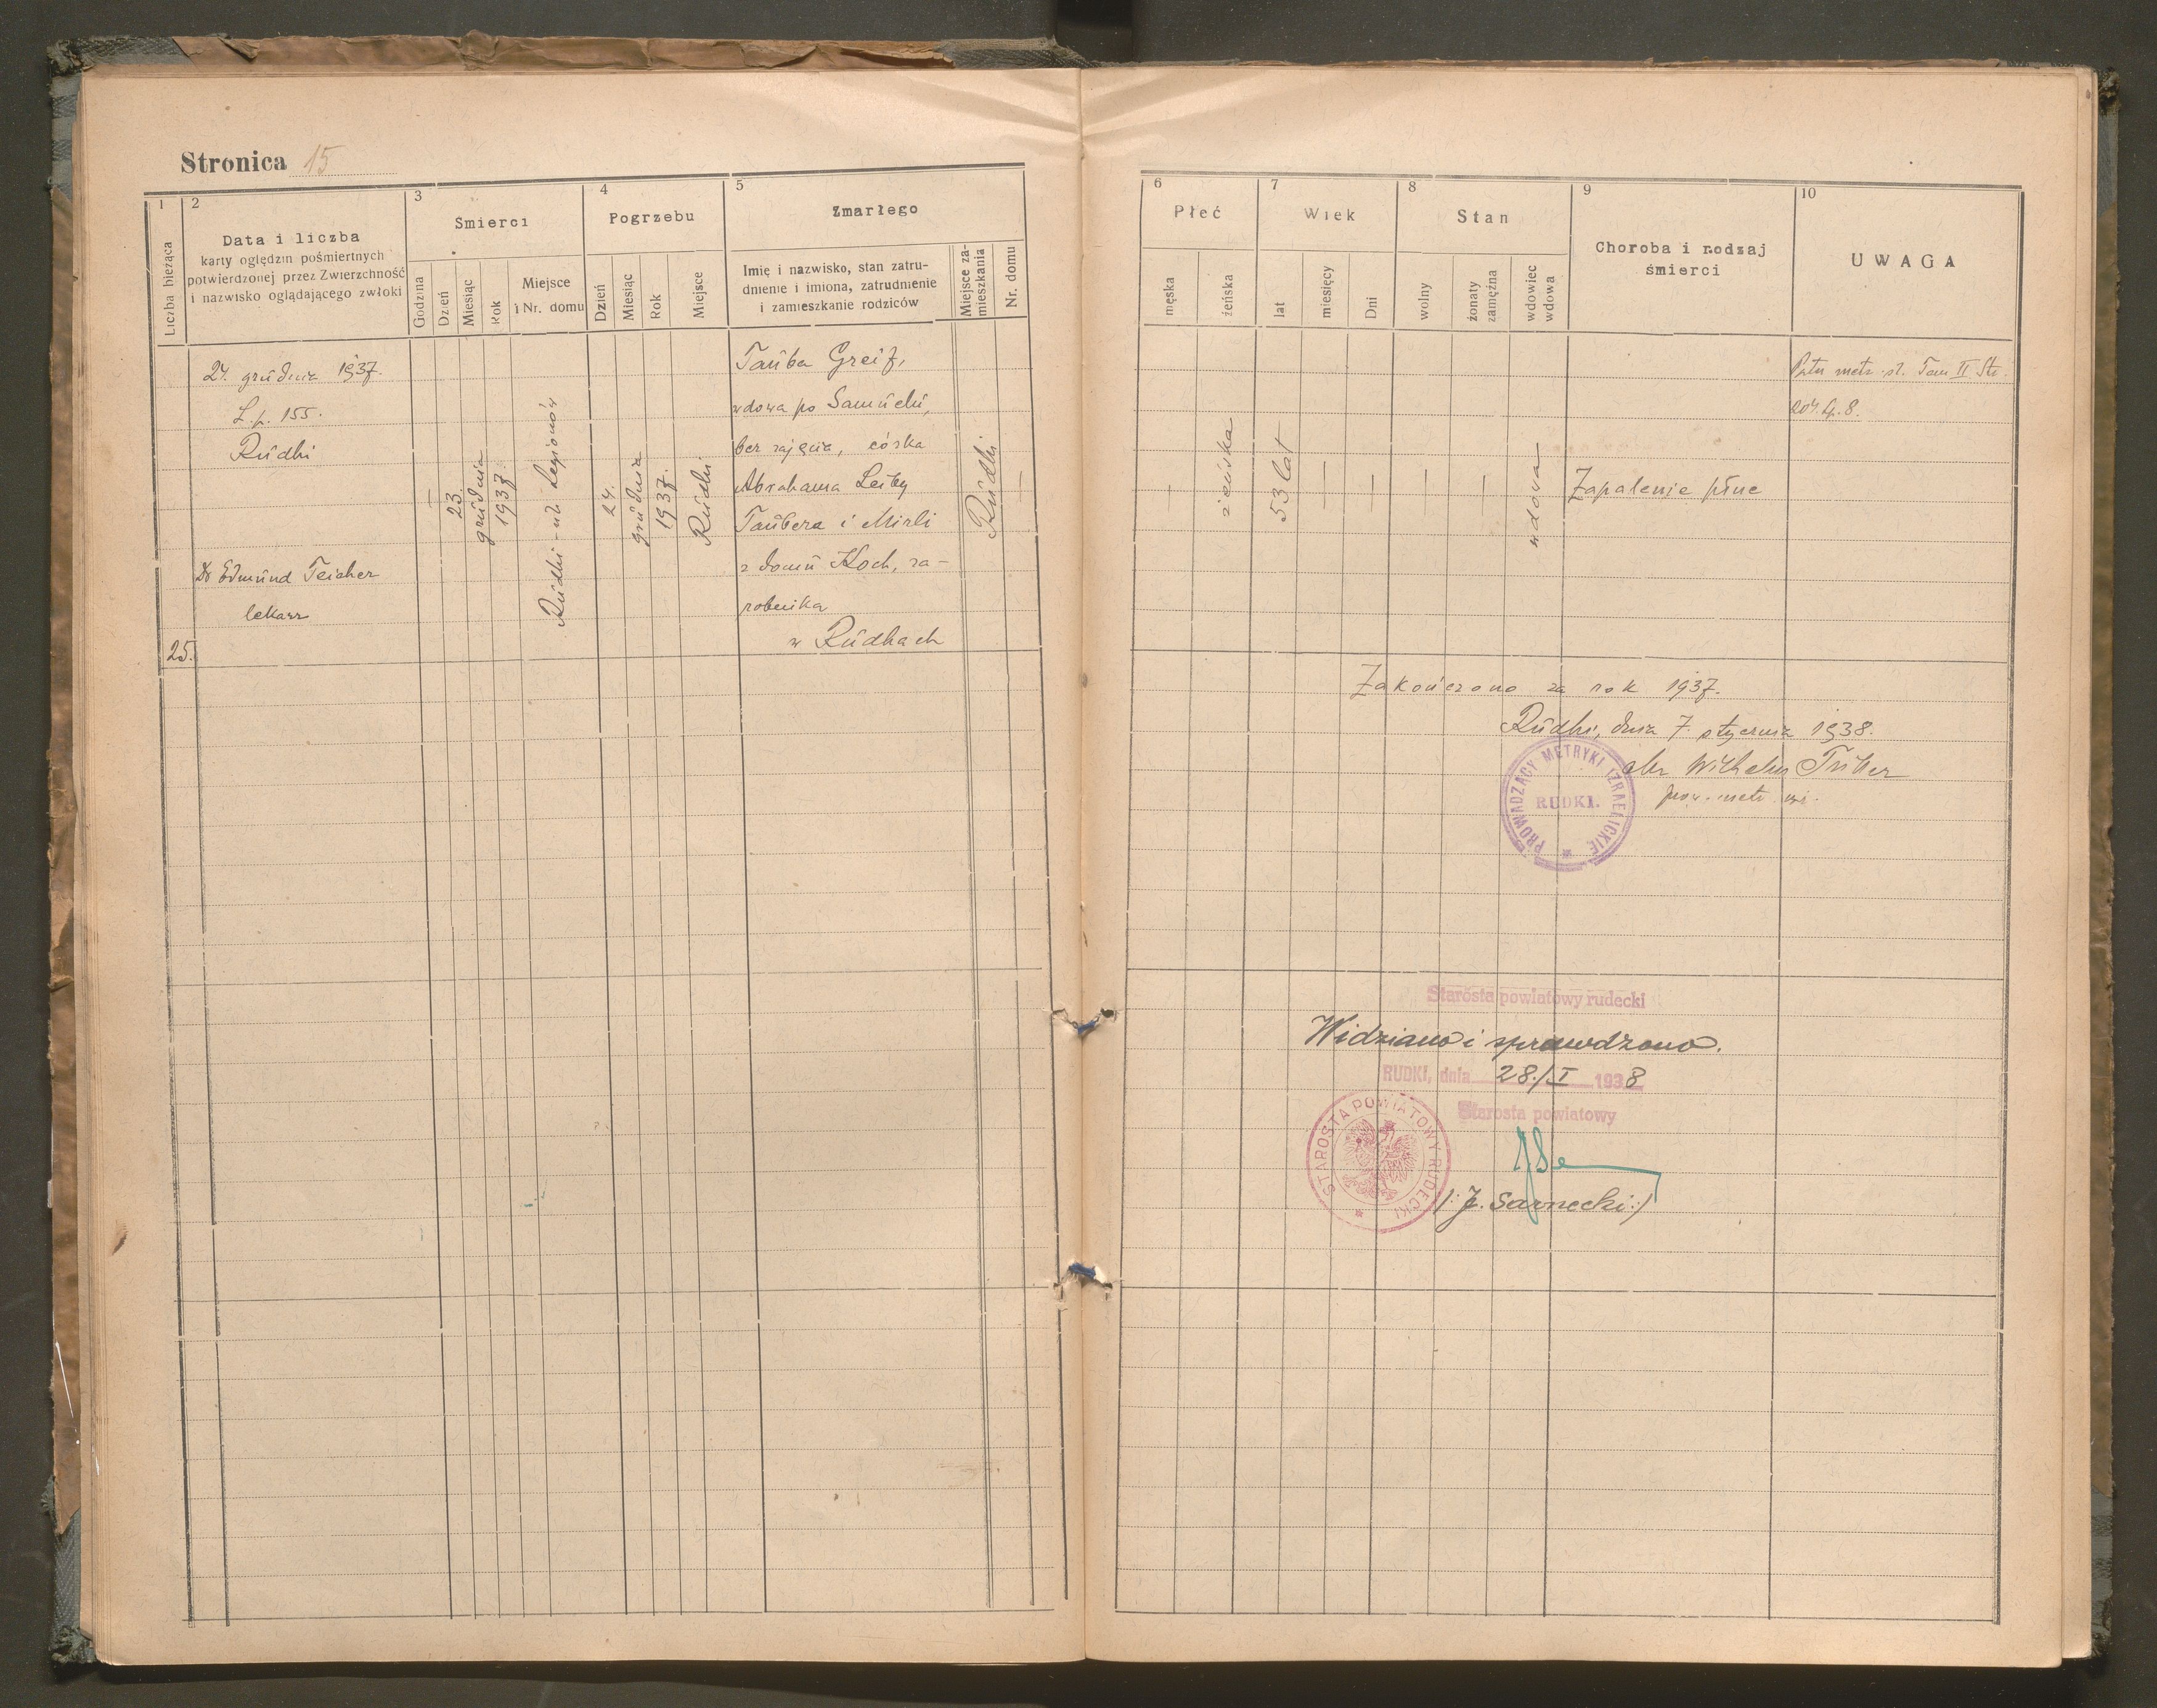 Stronica 15
1
2
3
4
5
Liczba bieżąca
Data i liczba
karty oględzin pośmiertnych
potwierdzonej przez Zwierzchność
i nazwisko oglądającego zwłoki
Śmierci
Godzina
Dzień
Miesiąc
Rok
Miejsce
i Nr. domu
Pogrzebu
Dzień
Miesiąc
Rok
Miejsce
Zmarłego
Imię i nazwisko, stan zatru-
dnienie i imiona, zatrudnienie
i zamieszkanie rodziców
Miejsce za-
mieszkania
Nr. domu
25.
24. grudnia 1937.
L.p. 155.
Rudki
Dr Edmund Teicher
lekarz
—
23.
grudnia
1937.
Rudki - ul. Legionów
24.
grudnia
1937.
Rudki
Tauba Greif,
wdowa po Samuelu,
bez zajęcia, córka
Abrahama Leiby
Taubera i Mirli
z domu Koch, za-
robnika
w Rudkach
Rudki
—
6
7
8
9
10
Płeć
męska
żeńska
Wiek
lat
miesięcy
Dni
Stan
wolny
żonaty
zamężna
wdowiec
wdowa
Choroba i rodzaj
śmierci
UWAGA
—
żeńska
53 lat
—
—
—
—
wdowa
Zapalenie płuc
metr. Tom II Str.
204. Lp. 8.
Zakończono za rok 1937.
Rudki, dnia 7. stycznia 1938.
Wilhelm
prow. metr. izr.
PROWADZĄCY METRYKI IZRAELICKIE
RUDKI.
Starosta powiatowy rudecki
Widziano i sprawdzono.
RUDKI, dnia 28./I 1938
Starosta powiatowy
STAROSTA POWIATOWY RUDECKI
/: J. Sarnecki :/